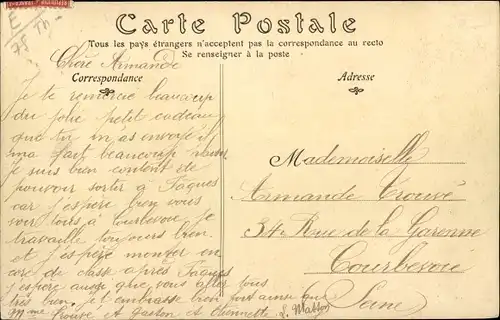 E
75 Th
Carte Postale
Tous les pays étrangers n'acceptent pas la correspondance au recto
Se renseigner à la poste
Correspondance
Adresse
Chère Armande
Je te remercie beaucoup
du jolie petit cadeau
que tu m'as envoyé il
ma fait beaucoup
Je suis bien content de
pouvoir sortir a Paques
car j'espère bien vous
voir tous à Courbevoie. Je
travaille toujours bien
et j'espère monter en
core de classe après Paques
j'espère aussi que vous allez tous
très bien. Je t'embrasse bien fort ainsi que
Mme Trouvé et Gaston et
Mademoiselle
Armande Trouvé
34 Rue de la Garenne
Courbevoie
Seine